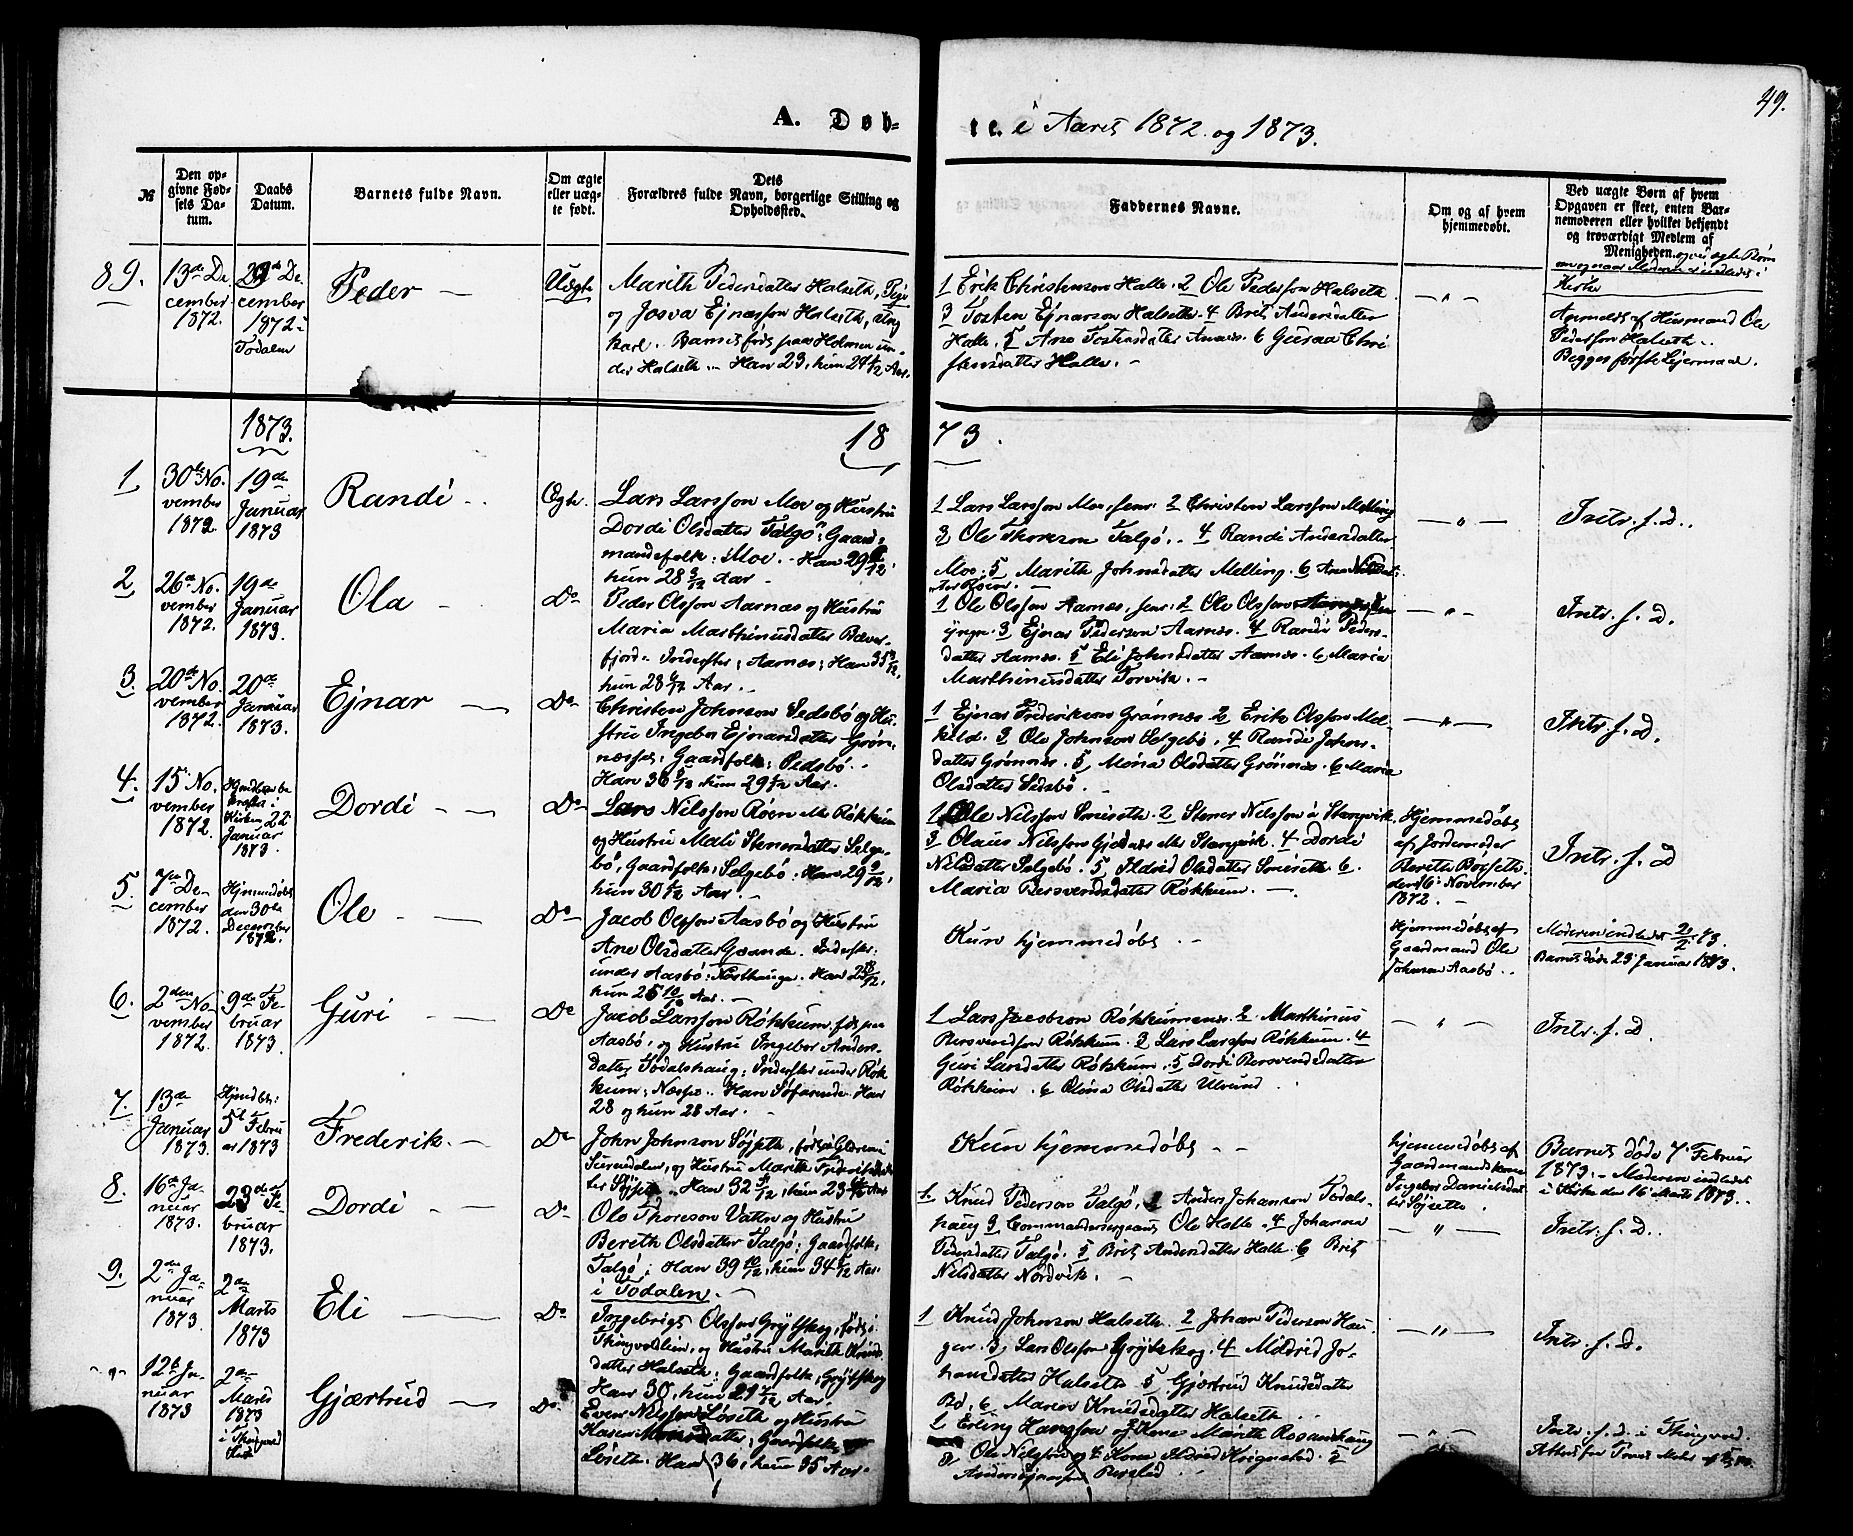 49.
A. Døb-
te. i Aaret 1872. og 1873.
№
Den op-
givne Fød-
sels Da-
tum.
Daabs
Datum.
Barnets fulde Navn.
Om ægte
eller uæg-
te født.
Dets
Forældres fulde Navn, borgerlige Stilling og
Opholdssted.
Faddernes Navne.
Om og af hvem
hjemmedøbt.
Ved uægte Børn af hvem
Opgaven er skeet, enten Bar-
nemoderen eller hvilket bekjendt
og troværdigt Medlem af
Menigheden.
89.
13de De
cember
1872.
De
cember
1872 i
Todalen
Peder —
Uægte
Marith Pedersdatter Halseth, Pige
og Josva Ejnarsson Halseth, Ung
karl. Barnet født paa Holmen un-
der Halseth. - Han 23, hun 24
1 Erik Christenson Halle. 2 Ole Pederson Halseth
3 Tosten Ejnarson Halseth. 4 Brit Andersdatter
Halle. 5 Ane Tostensdatter 6 Guraa Chri
stensdatter Halle. -
Anmeldt af Husmand Ole
Pederson Halseth..
Begges første Lejermaal.
1873.
18 73.
1
30te No.
vember
1872.
19de
Januar
1873
Randi - .
Ægte.
Lars Larsson Moe og Hustru
Dordi Olsdatter Talgø; Gaard-
mandsfolk: Moe. - Han 29
hun 28 Aar -
1 Lars Larsson Moe, senr. 2 Christen Larsson Melling
3 Ole Thoreson Talgø. - 4 Randi Andersdatter
Moe. 5 Marith Johnsdatter Melling. 6 Ane
Intr. f. D..
2
26de No.
vember
1872.
19de
Januar
1873.
Ola -
Do
Peder Olsson Aarnæs og Hustru
Maria Marthinusdatter Bæver-
fjord. Inderster; Aarnæs; Han 35
hun 28 Aar. -
1 Ole Olsson Aarnæs, senr: 2 Ole Olsson
yngr. 3 Ejnar Pederson Aarnæs. 4 Randi Peders-
datter Aarnæs. 5 Eli Johnsdatter Aarnæs. 6 Maria
Marthinusdatter Torvik. -
Intr. f. D.
3.
20de No.
vember
1872.
20de
Januar
1873.
Ejnar —
Do
Christen Johnson Sedsbø og Hu-
stru Ingebor Ejnarsdatter Grøn-
næsset; Gaardfolk: Sedsbø. .
Han 36 hun 29 Aar.
1 Ejnar Frederikson Grønnes 2 Erik Olsson Mel-
hild. 3 Ole Johnson Selgebø. 4 Randi Johns-
datter Grønnes. 5 Mona Olsdatter Grønnes. 6 Maria
Olsdatter Sedsbø. -
Intr. f. D.
4.
15. No.
vember
1872.
Kirken 22.
Januar
1873.
Dordi —
Do
Lars Nilsson Røen Røkkum
og Hustru Mali Stenersdatter Selge-
bø, Gaardfolk; Selgebø. Han 29
hun 30 Aar. -
1 Ole Nilsson 2 Stener Nilsson Stangvik.
3 Olaus Nilsson Stangvik. 4 Dordi
Nilsdatter Selgebø. 5 Ildrid Olsdatter 6.
Maria Bersvendsdatter Røkkum. -
Hjemmedøbt
af Jordemoder
Bereth
den 16. November
1872. -
Intr. f. D
5.
7de De-
cember
1872.
Hjemmedøbt
den 30te
December
1872.
Ole - —
Do
Jacob Olsson Aasbø og Hustru
Ane Olsdatter Inderster:
under Aasbø: Han
hun 25 10/12 Aar. -
Kun hjemmedøbt. -
Hjemmedøbt af
Gaardmand Ole
Johnson Aasbø..
Moderen indledet 73.
Barnet døde 23 Januar 1873.
6.
2den No-
vember
1872.
9de Fe-
bruar
1873.
Guri
Do
Jacob Larsson Røkkum, født paa
Aasbø, og Hustru Ingebor Anders-
datter Todalshaug; Inderster under Røk
kum; Næsset. Han Søfarende. Han
28 og hun 28 Aar. -
1 Lars Jacobson Røkkumsnes. 2 Marthinus
Bersvendson Røkkum. 3 Lars Larsson Røkkum. 4
Guri Larsdatter Røkkum. 5 Dordi Bersvendsdatter
Røkkum. 6 Olina Olsdatter Ulvund.
Intr. f. D.
7.
13de
Januar
1873.
5t. Febru
ar 1873
Frederik. -
Do
John Johnson Søjseth, født
Surendalen, og Hustru Marith
Han 32 hun 23 Aar
Kun hjemmedøbt - -
hjemmedøbt af
Gaardmandskone
Ingebor
Søjseth.
Barnet døde 7 Februar
1873. - Moderen indledet
i Kirke den 16 Marts 1873.
8.
16de Ja-
nuar
1873.
23de Fe-
bruar
1873.
Dordi —
Do
Ole Thoreson Vatten og Hustru
Bereth Olsdatter Talgø; Gaardfolk;
Talgø; Han 39 10/12, hun 34 Aar.
i Todalen. -
1. Knud Pederson Talgø, 2 Anders Johanson Todals-
haug 3 Commandersergeant Ole Halle. 4 Johanna
Pedersdatter Talgø. 5 Brit Andersdatter Halle 6 Brit
Nilsdatter Nordvik. -
Intr. f. D..
9.
2den Ja-
nuar
1873.
2den
Marts
1873
Eli —
Do
Ingebrigt Olsson Grytskog, født i
Tingvoldlien, og Hustru Marith Knuds-
datter Halseth; Gaardfolk; Grytskog
Han 30, hun 29 Aar.
1 Knud Johnson Halseth. 2 Johan Pederson Hau-
gen. 3 Lars Olsson Grytskog. 4 Mildrid Jo-
hansdatter Halseth 5 Gjertrud Knudsdatter
Bø. 6 Marie Knudsdatter Halseth.
Intr. f. D.
12te Ja-
nuar
1873
2den
Marts
1873
i Tingvold
Kirke
Gjærtrud —
Do.
Even Nilsson Løseth og Hustru
Karen datter; Gaardfolk
Løseth. Han 36, hun 35 Aar.
1. Erling Hansson og Kone Marith Rosanshaug
3 Ole Nilsson og 4 Kone Ildrid 5
Anders
Intr. f. D. i Tingvold.